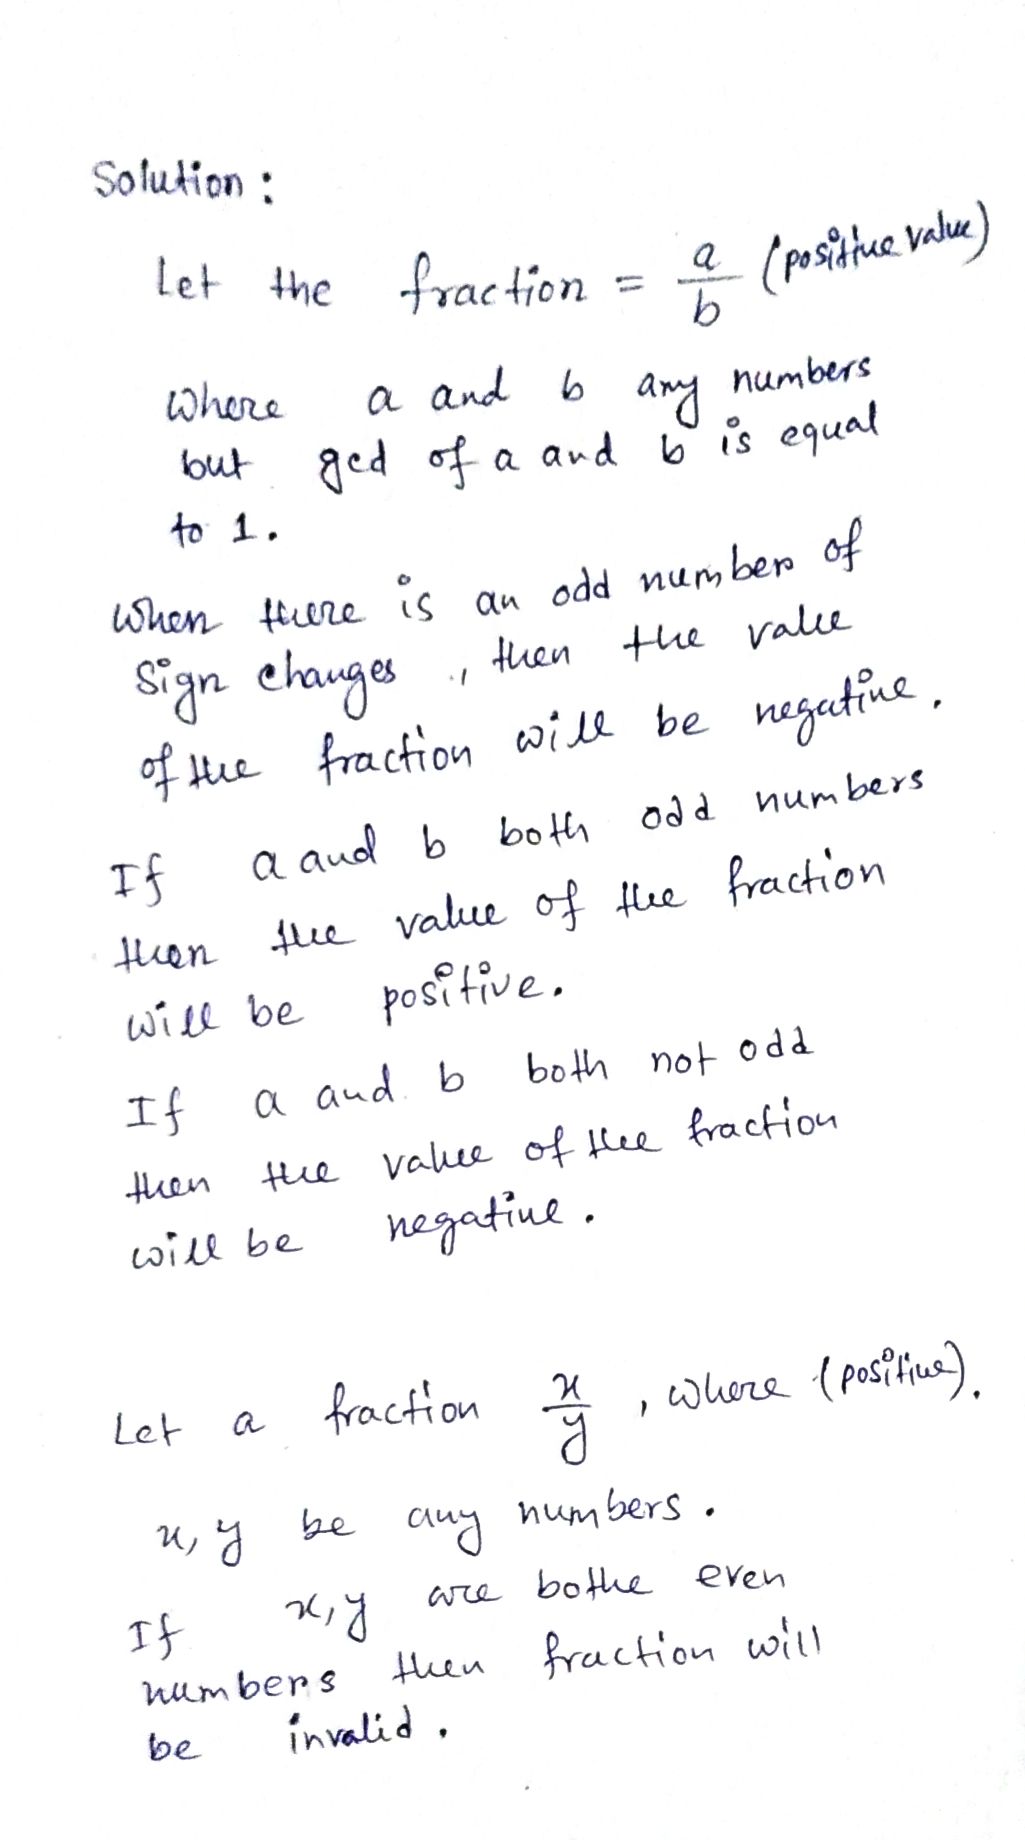 Solution :
Let the fraction = a/b (positive value)
Where a and b any numbers
but gcd of a and b is equal
to 1.
When there is an odd number of
Sign changes , then the value
of the fraction will be negative.
If a and b both odd numbers
then the value of the fraction
will be positive.
If a and b both not odd
then the value of the fraction
will be negative.
Let a fraction x/y , where (positive).
x, y be any numbers.
If x, y are bothe even
numbers then fraction will
be invalid.